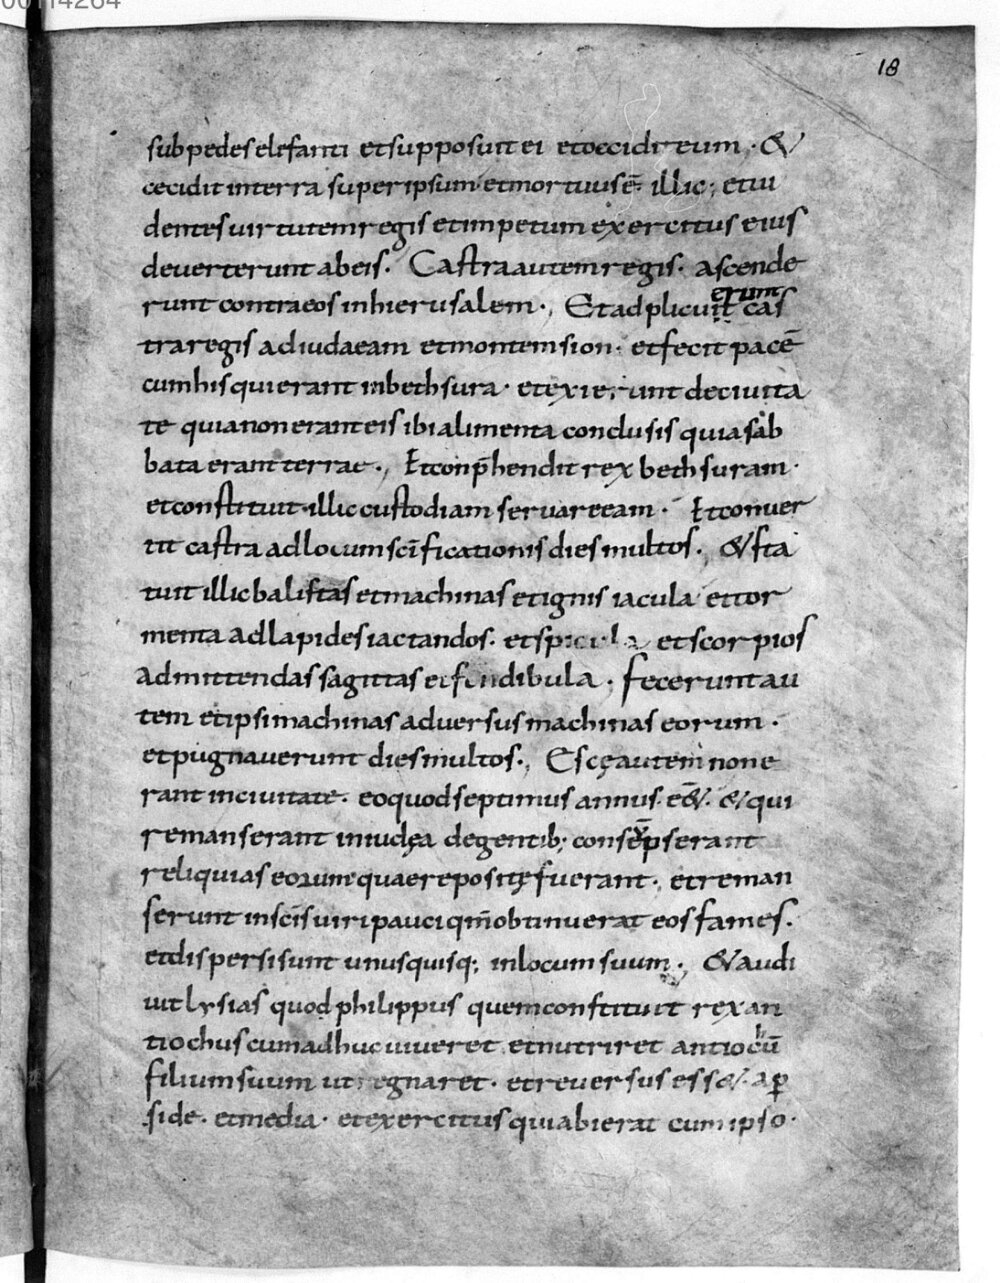 00114264
18
sub pedes elefanti et supposuit ei et occidit eum · &
cecidit in terra super ipsum et mortuus ē illic ; et ui
dentes uirtutem regis et impetum exercitus eius
deuerterunt ab eis. Castra autem regis · ascende
runt contra eos in hierusalem ·, Et adplicuit erunt cas
tra regis ad iudaeam et montem sion · et fecit pacē
cum his qui erant in bethsura · et exierunt de ciuita
te quia non erant eis ibi alimenta conclusis quia sab
bata erant terrae ·, Et conp̄hendit rex bethsuram ·
et constituit illic custodiam seruare eam · Et conuer
tit castra ad locum scīficationis dies multos ·, & sta
tuit illic balistas et machinas et ignis iacula et tor
menta ad lapides iactandos · et spicula et scorpios
ad mittendas sagittas et fundibula · fecerunt au
tem et ipsi machinas aduersus machinas eorum ·
et pugnauerunt dies multos ·, Escę autem non e
rant in ciuitate · eo quod septimus annus e&̄ · & qui
remanserant in iudęa de gentib; consūpserant
reliquias eorum quae repositę fuerant ·, et reman
serunt in scīs uiri pauci qm̄ obtinuerat eos fames ·
et dispersi sunt unusquisq; in locum suum · & audi
uit lysias quod philippus quem constituit rex an
tiochus cum adhuc uiueret et nutriret antiochū
filium suum ut regnaret · et reuersus ess& · a ꝑ
side · et media · et exercitus qui abierat cum ipso ·